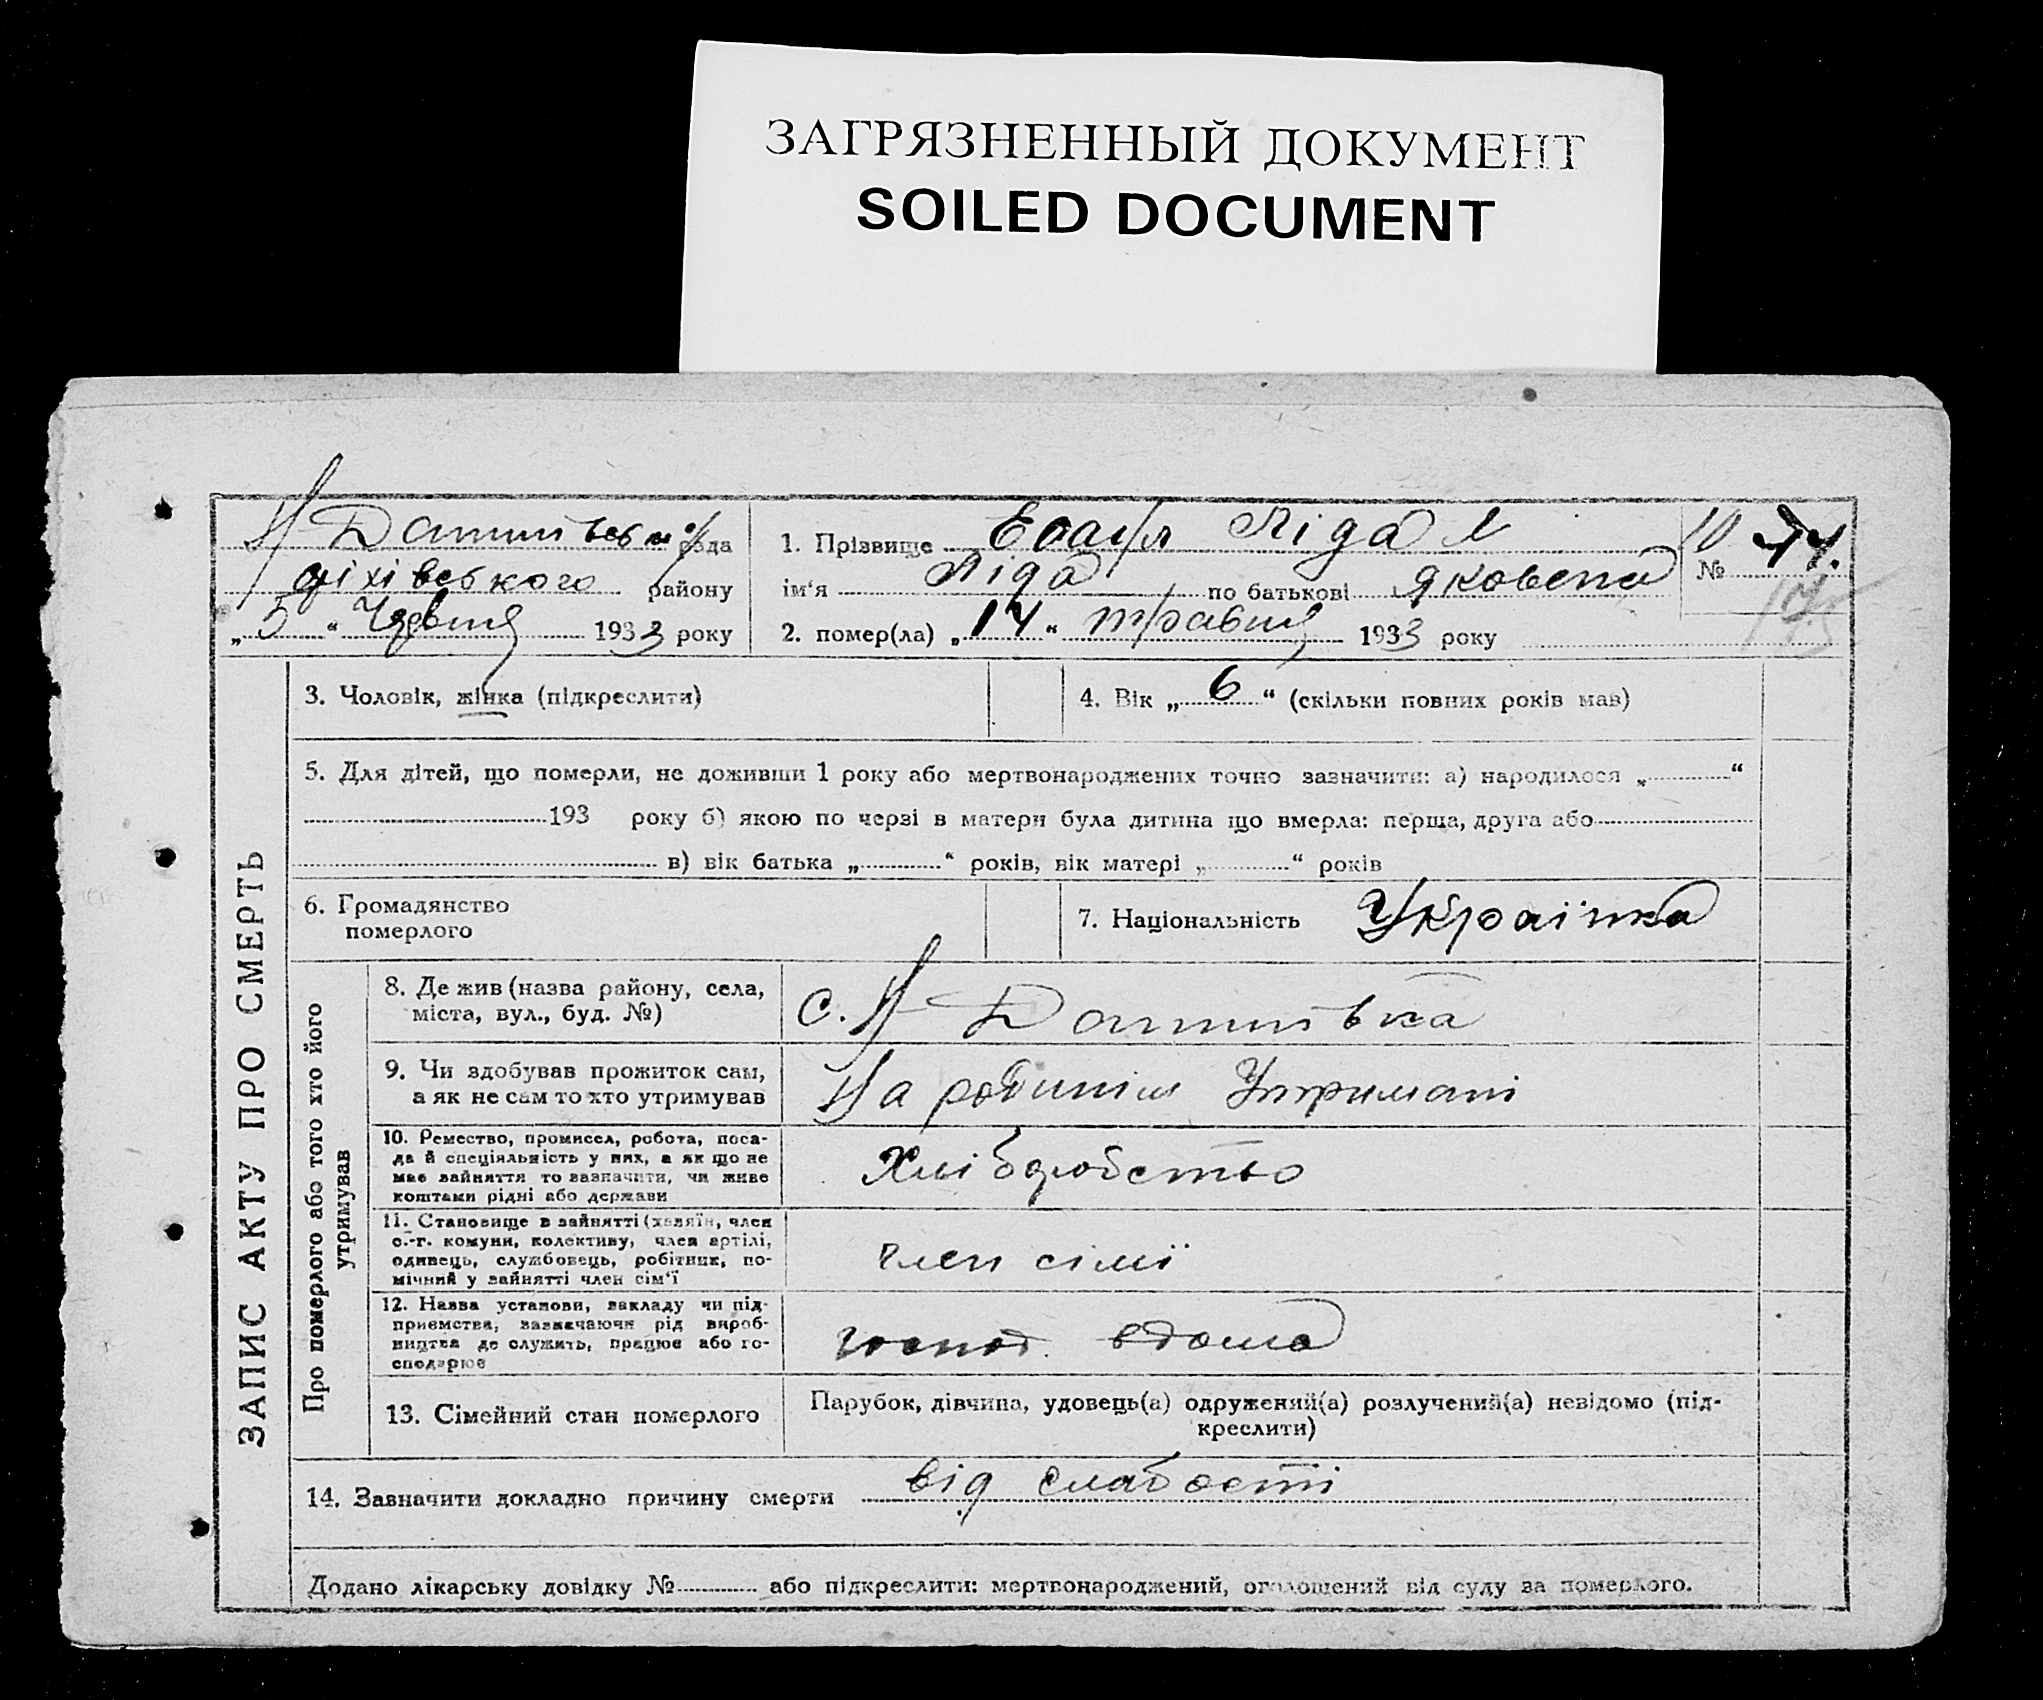 ЗАГРЯЗНЕННЫЙ ДОКУМЕНТ
SOILED DOCUMENT
рада
району
„ 5 “ Червня 1933 року
1. Прізвище Ліда
ім'я Ліда по батькові Яковена
2. помер(ла) „ 14 “ травня 1933 року
10
№ 74.
ЗАПИС АКТУ ПРО СМЕРТЬ
3. Чоловік, жінка (підкреслити)
4. Вік „ 6 “ (скільки повних років мав)
5. Для дітей, що померли, не доживши 1 року або мертвонароджених точно зазначити: а) народилося „ “
193 року б) якою по черзі в матери була дитина що вмерла: перша, друга або
в) вік батька „ “ років, вік матері „ “ років
6. Громадянство
померлого
7. Національність Українка
Про померлого або того хто його
утримував
8. Де жив (назва району, села,
міста, вул., буд. №)
с. Н Данилівка
9. Чи здобував прожиток сам,
а як не сам то хто утримував
На родинім Утримані
10. Ремество, промисел, робота, поса-
да й спеціяльність у них, а як що не
має зайняття то зазначити, чи живе
коштами рідні або держави
Хліборобство
11. Становище в зайнятті (хазяїн, член
с.-г. комуни, колективу, член артілі,
одинець, службовець, робітник, по-
мічний у зайнятті член сім'ї
член сімї
12. Назва установи, закладу чи під-
приємства, зазначаючи рід вироб-
ництва де служить, працює або го-
сподарює
господ. вдома
13. Сімейний стан померлого
Парубок, дівчина, удовець(а) одружений(а) розлучений(а) невідомо (під-
креслити)
14. Зазначити докладно причину смерти від слабості
Додано лікарську довідку № або підкреслити: мертвонароджений, оголошений від суду за померлого.